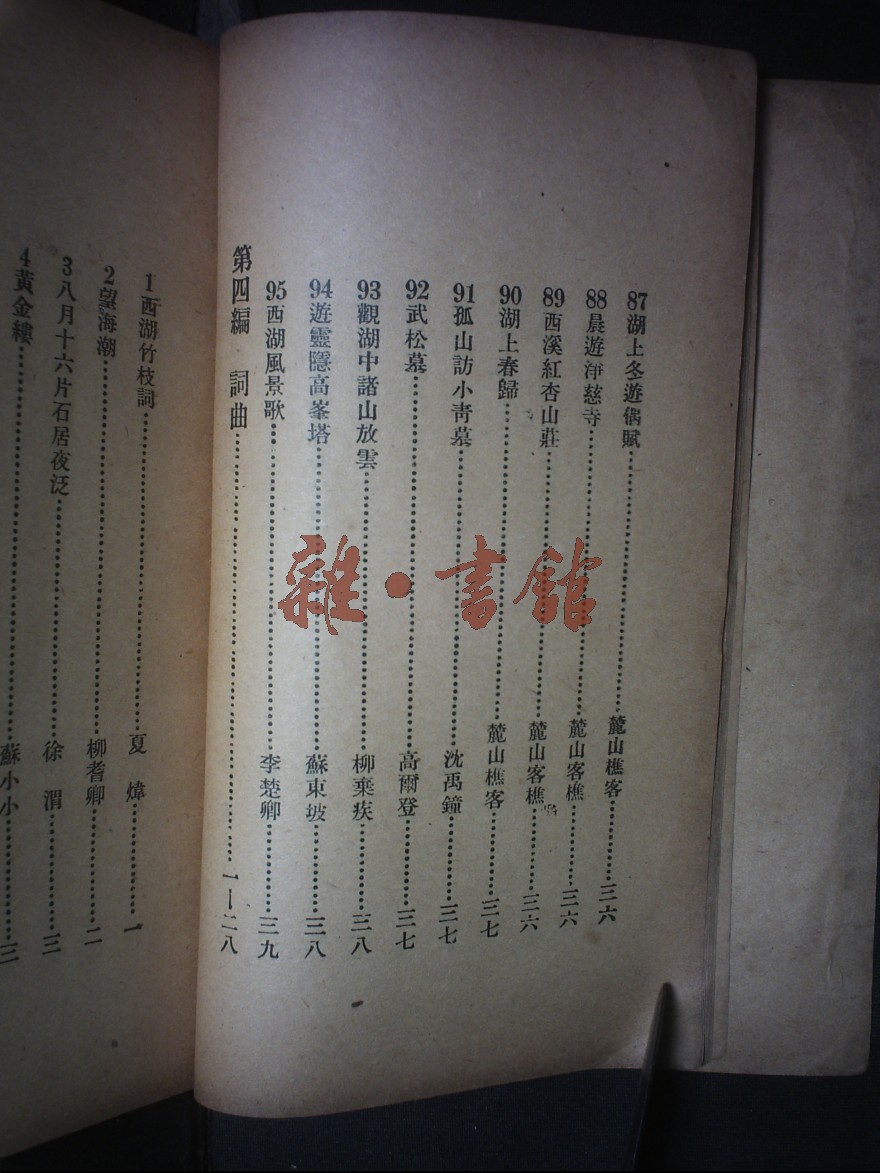 87湖上冬遊偶賦……麓山樵客……三六
88晨遊淨慈寺……麓山客樵……三六
89西溪紅杏山莊……麓山客樵……三六
90湖上春歸……麓山樵客……三七
91孤山訪小青墓……沈禹鐘……三七
92武松墓……高爾登……三七
93觀湖中諸山放雲……柳棄疾……三八
94遊靈隱高峯塔……蘇東坡……三八
95西湖風景歌……李楚卿……三九
第四編 詞曲……一—二八
1西湖竹枝詞……夏煒……一
2望海潮……柳耆卿……二
3八月十六片石居夜泛……徐渭……三
4黃金縷……蘇小小……三
雜·書館